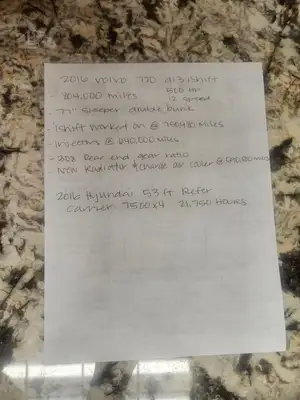 2016 Volvo 770 D13 ishift
- 804,000 miles 500 HP
12 speed
- 77" Sleeper double bunk
- ishift worked on @ miles
- injectors @ 640,000 miles
- 308 Rear end gear ratio
- New Radiator & charge air cooler @ miles
2016 Hyundai 53 ft Refer
Carrier 7500x4 21,750 Hours